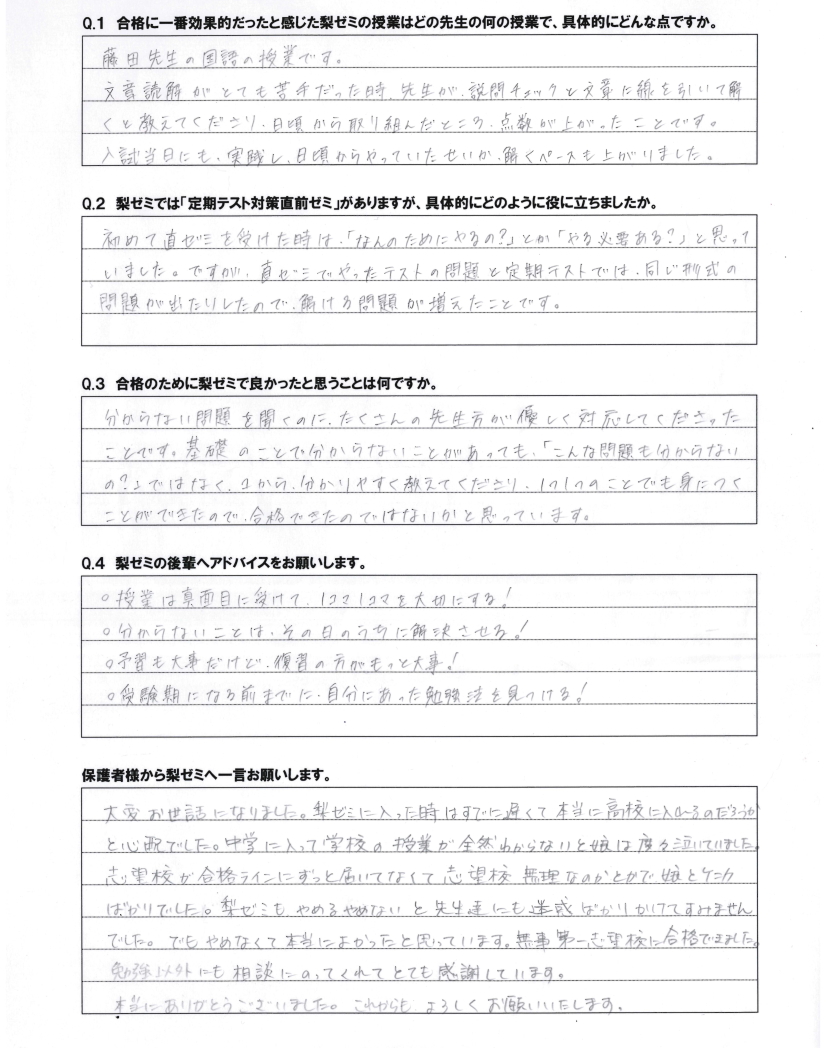 Q.1 合格に一番効果的だったと感じた梨ゼミの授業はどの先生の何の授業で、具体的にどんな点ですか。
藤田先生の国語の授業です。
文章読解がとても苦手だった時、先生が、説問チェックと文章に線を引いて解
くと教えてくださり、日頃から取り組んだところ、点数が上がったことです。
入試当日にも、実践し、日頃からやっていたせいか、解くペースも上がりました。
Q.2 梨ゼミでは「定期テスト対策直前ゼミ」がありますが、具体的にどのように役に立ちましたか。
初めて直ゼミを受けた時は、「なんのためにやるの?」とか「やる必要ある?」と思って
いました。ですが、直ゼミでやったテストの問題と定期テストでは、同じ形式の
問題が出たりしたので、解ける問題が増えたことです。
Q.3 合格のために梨ゼミで良かったと思うことは何ですか。
分からない問題を聞くのに、たくさんの先生方が優しく対応してくださった
ことです。基礎のことで分からないことがあっても、「こんな問題も分からない
の?」ではなく、1から、分かりやすく教えてくださり、1つ1つのことでも身につく
ことができたので、合格できたのではないかと思っています。
Q.4 梨ゼミの後輩へアドバイスをお願いします。
○授業は真面目に受けて、1コマ1コマを大切にする!
○分からないことは、その日のうちに解決させる!
○予習も大事だけど、復習の方がもっと大事!
○受験期になる前までに、自分にあった勉強法を見つける!
保護者様から梨ゼミへ一言お願いします。
大変お世話になりました。梨ゼミに入った時はすでに遅くて本当に高校に入れるのだろうか
と心配でした。中学に入って学校の授業が全然わからないと娘は度々泣いていました。
志望校が合格ラインにずっと届いてなくて志望校無理なのかとかで娘とケンカ
ばかりでした。梨ゼミもやめるやめないと先生達にも迷惑ばかりかけてすみません
でした。でもやめなくて本当によかったと思っています。無事第一志望校に合格できました。
勉強以外にも相談にのってくれてとても感謝しています。
本当にありがとうございました。これからもよろしくお願いいたします。